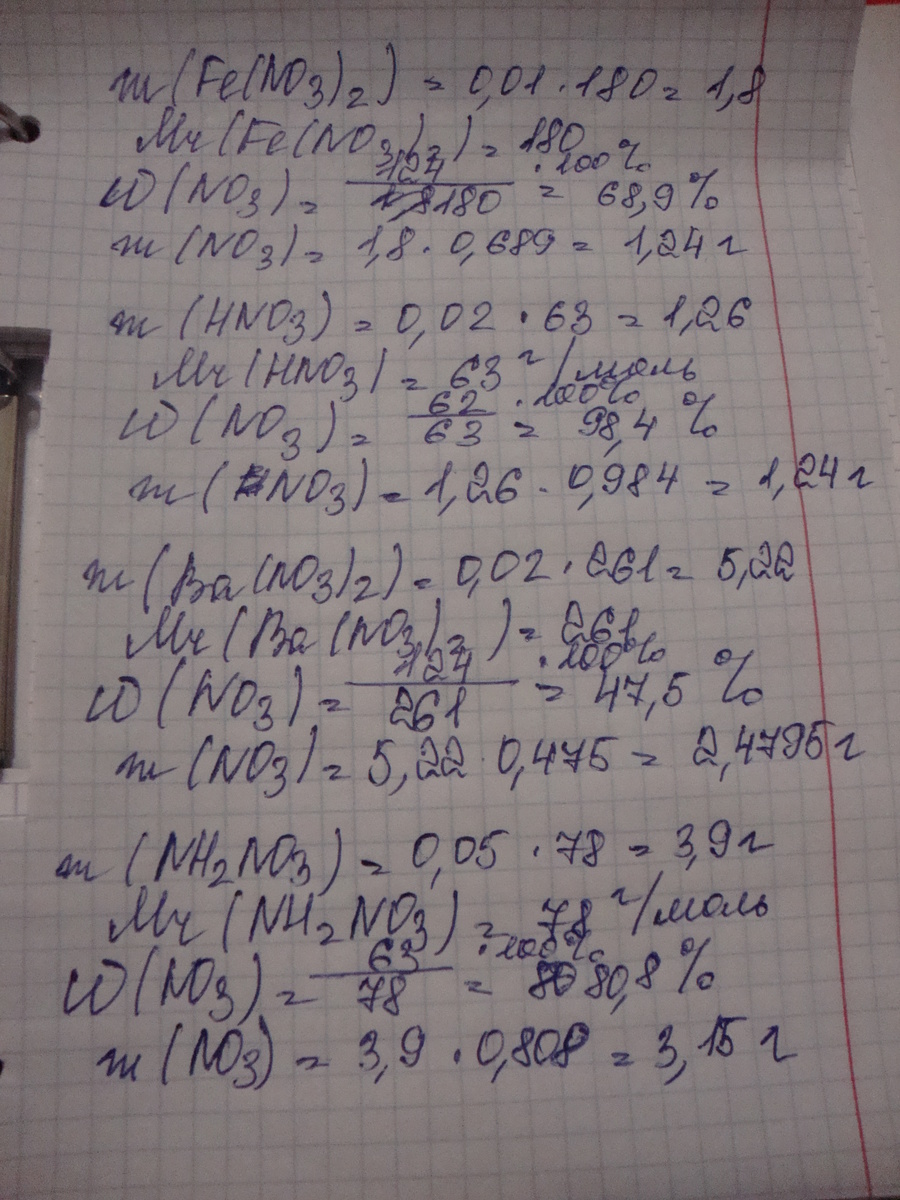 m(Fe(NO3)2) = 0,01 · 180 = 1,8
Mч(Fe(NO3)2) = 180
W(NO3) = 124/180 · 100% = 68,9%
m(NO3) = 1,8 · 0,689 = 1,24 г
m(HNO3) = 0,02 · 63 = 1,26
Mч(HNO3) = 63 г/моль
W(NO3) = 62/63 · 100% = 98,4 %
m(NO3) = 1,26 · 0,984 = 1,24 г
m(Ba(NO3)2) = 0,02 · 261 = 5,22
Mч(Ba(NO3)2) = 261
W(NO3) = 124/261 · 100% = 47,5 %
m(NO3) = 5,22 · 0,475 = 2,4795 г
m(NH2NO3) = 0,05 · 78 = 3,9 г
Mч(NH2NO3) = 78 г/моль
W(NO3) = 63/78 · 100% = 80,8 %
m(NO3) = 3,9 · 0,808 = 3,15 г